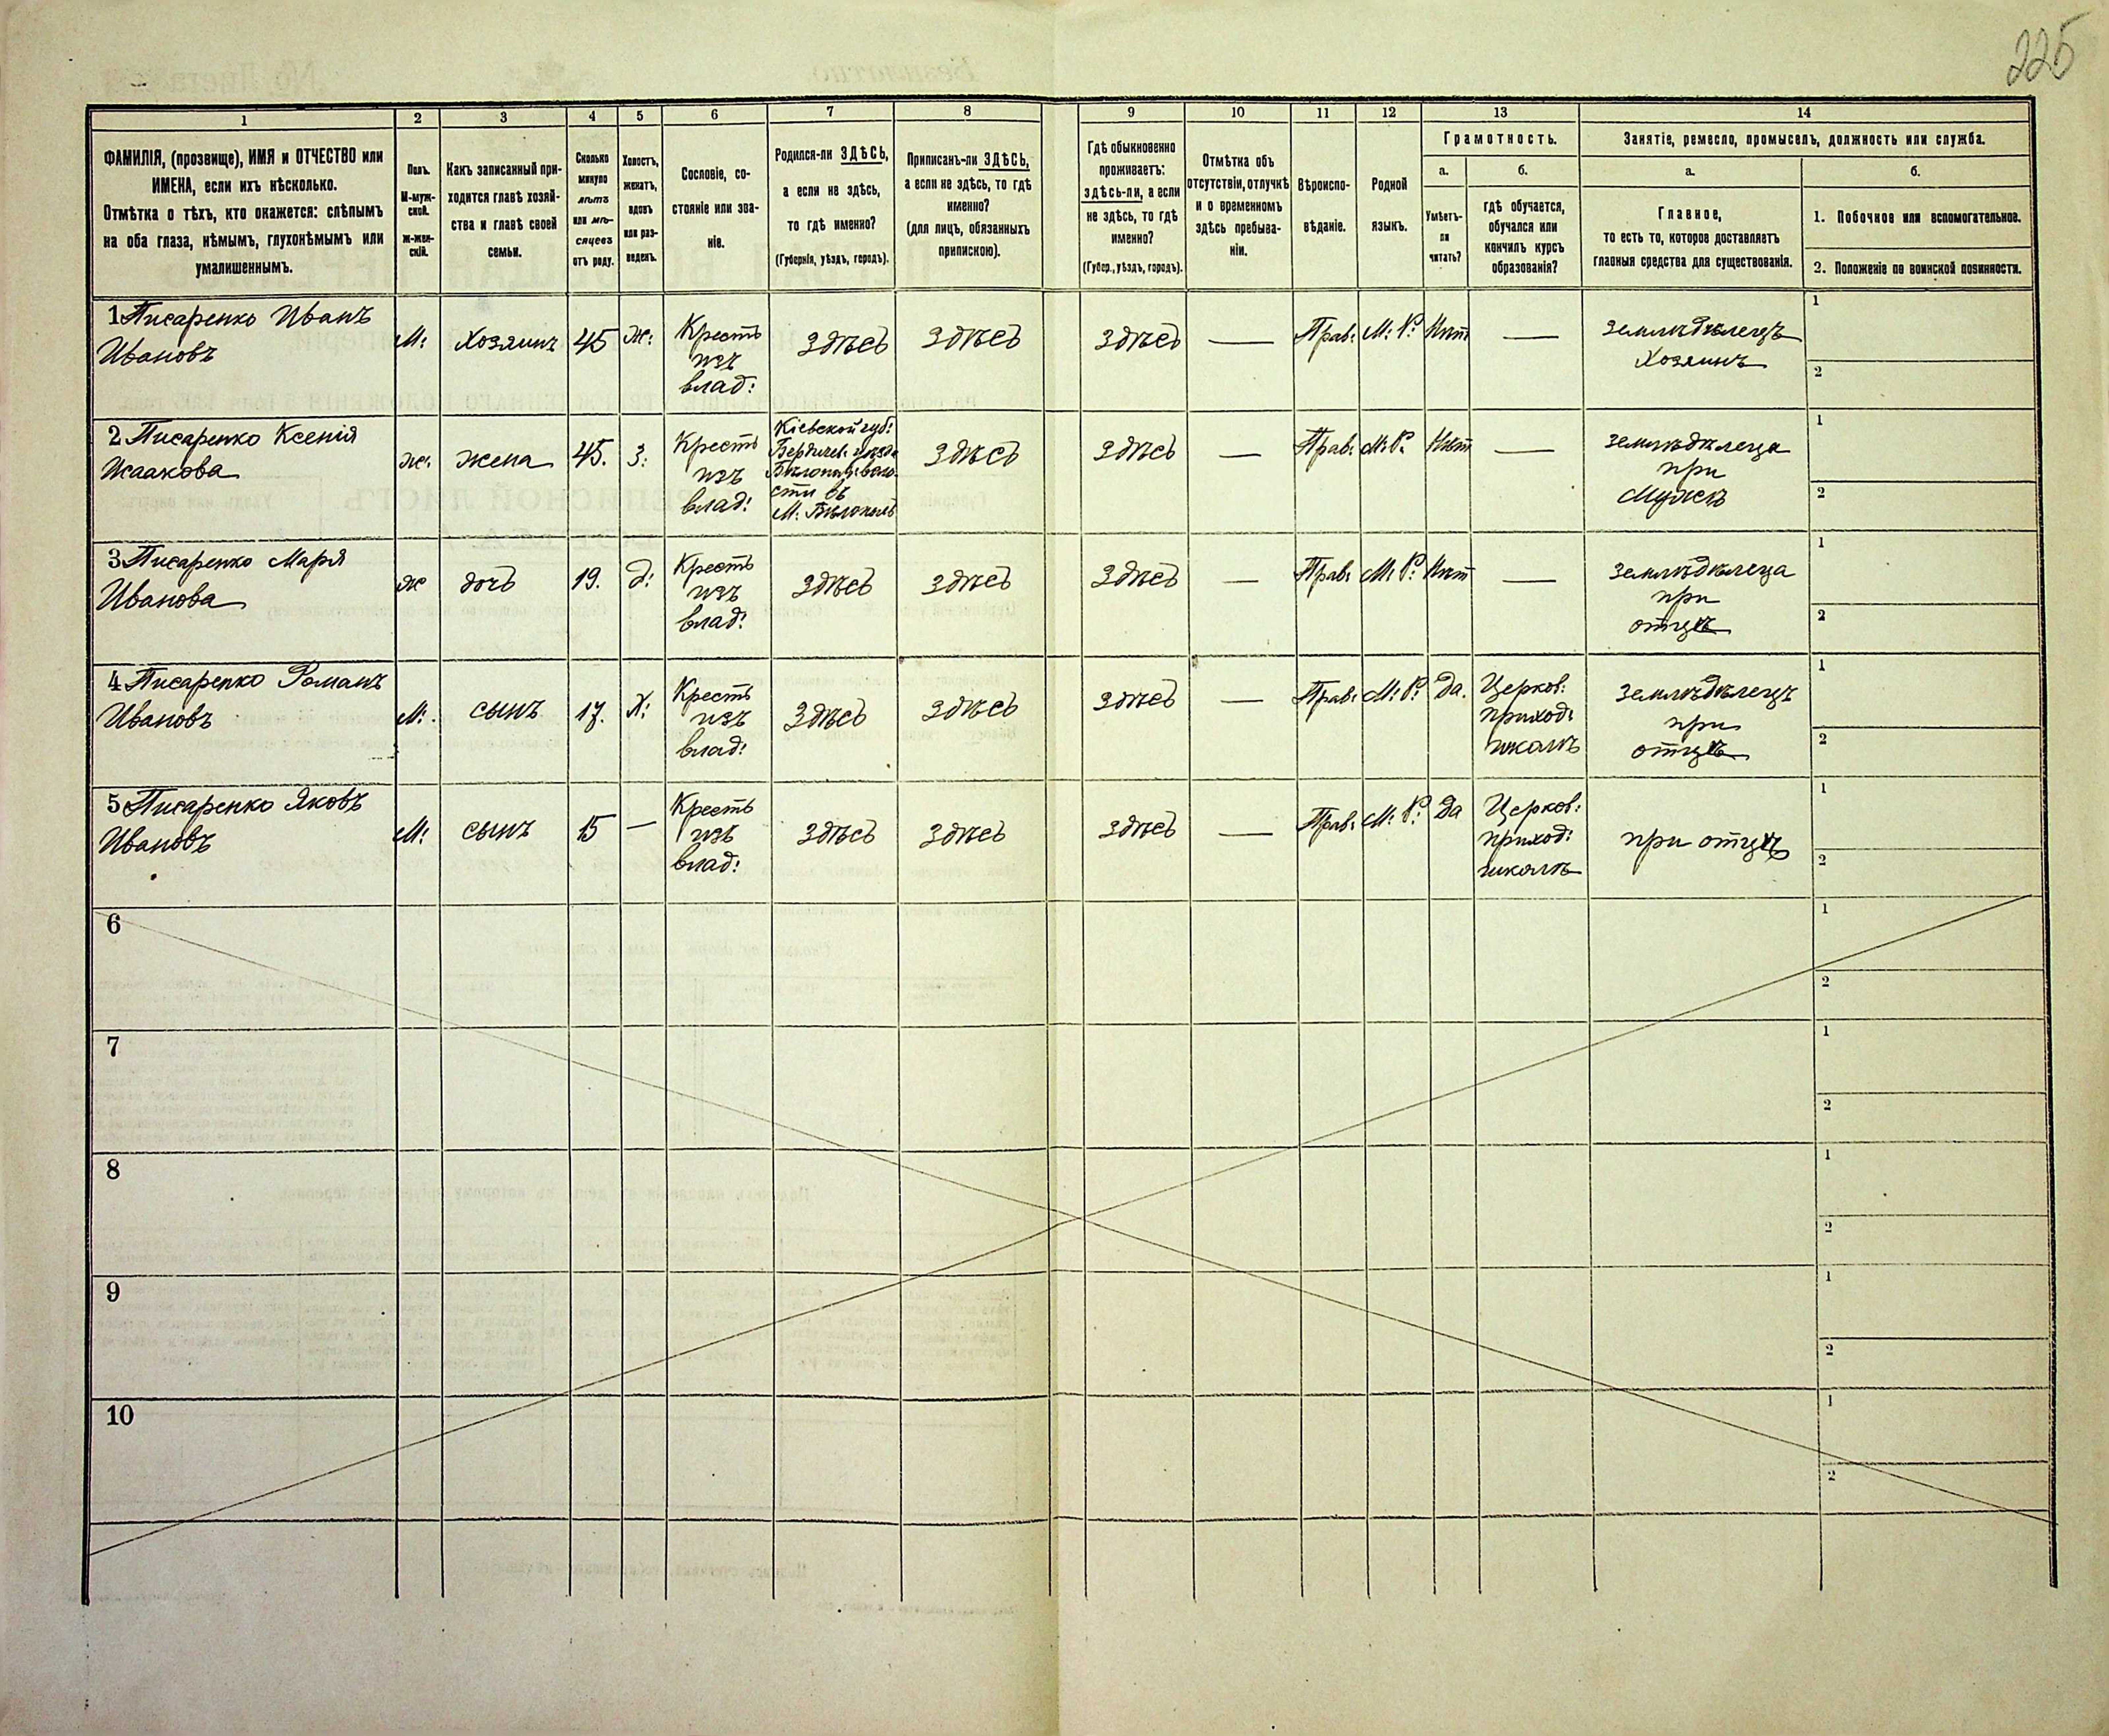 225
1 2 3 4 5 6 7 8 9 10 11 12 13 14
ФАМИЛІЯ, (прозвище), ИМЯ и ОТЧЕСТВО или
ИМЕНА, если ихъ нѣсколько.
Отмѣтка о тѣхъ, кто окажется: слѣпымъ
на оба глаза, нѣмымъ, глухонѣмымъ или
умалишеннымъ.
Полъ.
М-муж-
ской.
Ж-жен-
скій.
Какъ записанный при-
ходится главѣ хозяй-
ства и главѣ своей
семьи.
Сколько
минуло
лѣтъ
или мѣ-
сяцевъ
отъ роду.
Холостъ,
женатъ,
вдовъ
или раз-
веденъ.
Сословіе, со-
стояніе или зва-
ніе.
Родился-ли ЗДѢСЬ,
а если не здѣсь,
то гдѣ именно?
(Губернія, уѣздъ, городъ).
Приписанъ-ли ЗДѢСЬ,
а если не здѣсь, то гдѣ
именно?
(для лицъ, обязанныхъ
припискою).
Гдѣ обыкновенно
проживаетъ:
здѣсь-ли, а если
не здѣсь, то гдѣ
именно?
(Губер., уѣздъ, городъ).
Отмѣтка объ
отсутствіи, отлучкѣ
и о временномъ
здѣсь пребыва-
ніи.
Вѣроиспо-
вѣданіе.
Родной
языкъ.
Грамотность.
а.
Умѣетъ-
ли
читать?
б.
гдѣ обучается,
обучался или
кончилъ курсъ
образованія?
Занятіе, ремесло, промыселъ, должность или служба.
а.
Главное,
то есть то, которое доставляетъ
главныя средства для существованія.
б.
1. Побочное или вспомогательное.
2. Положеніе по воинской повинности.
1 Писаренко Иванъ
Ивановъ
М:
Хозяинъ
45
ж:
Крестъ
изъ
влад:
здѣсь
здѣсь
здѣсь
—
Прав:
М: Р:
Нѣт
—
земледѣлецъ
Хозяинъ
1
2
2 Писаренко Ксенія
Исаакова
ж:
жена
45.
З:
Крестъ
изъ
влад:
Кіевской губ:
Бердичев: уѣзда
здѣсь
здѣсь
—
Прав:
М: Р:
Нѣт
—
земледѣлеца
при
Мужѣ
1
2
3 Писаренко Марія
Иванова
ж
дочь
19.
д:
Крестъ
изъ
влад:
здѣсь
здѣсь
здѣсь
—
Прав:
М: Р:
Нѣт
—
земледѣлеца
при
отцѣ
1
2
4 Писаренко Романъ
Ивановъ
М:
сынъ
17.
Х:
Крестъ
изъ
влад:
здѣсь
здѣсь
здѣсь
—
Прав:
М: Р:
Да.
Церков:
приход:
школѣ
земледѣлецъ
при
отцѣ
1
2
5 Писаренко Яковъ
Ивановъ
М:
сынъ
15
—
Крестъ
изъ
влад:
здѣсь
здѣсь
здѣсь
—
Прав:
М: Р:
Да
Церков:
приход:
школѣ
при отцѣ
1
2
6
1
2
7
1
2
8
1
2
9
1
2
10
1
2